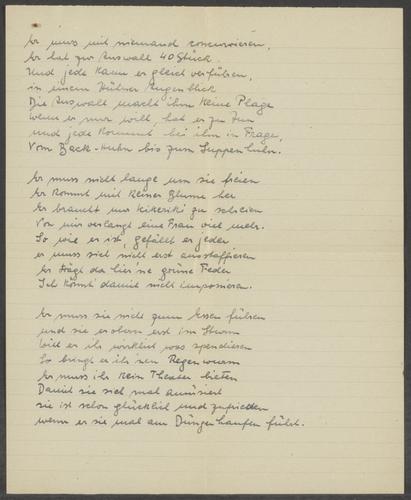 Er muss mit niemand concurrieren,
Er hat zur Auswahl 40 Stück.
Und jede kann er gleich verführen,
in einem Hühner Augenblick
Die Auswahl macht ihm keine Plage
wenn er nur will, hat er zu tun
und jede kommt bei ihm in Frage,
Vom Back-Huhn bis zum Suppenhuhn.
Er muss nicht lange um sie freien
Er kommt mit keiner Blume her
Er braucht nur Kikeriki zu schreien
Von mir verlangt eine Frau viel mehr.
So wie er ist, gefällt er jeder
er muss sich nicht erst ausstaffieren
Er trägt da hier'ne grüne Feder
Ich könnt damit nicht imponieren.
Er muss sie nicht zum Essen führen
und sie erobern erst im Sturm
Will er ihr wirklich was spendieren
So bringt er ihr 'nen Regenwurm
Er muss ihr kein Theater bieten
Damit sie sich mal amüsiert
sie ist schon glücklich und zufrieden
wenn er sie mal am Düngerhaufen führt.